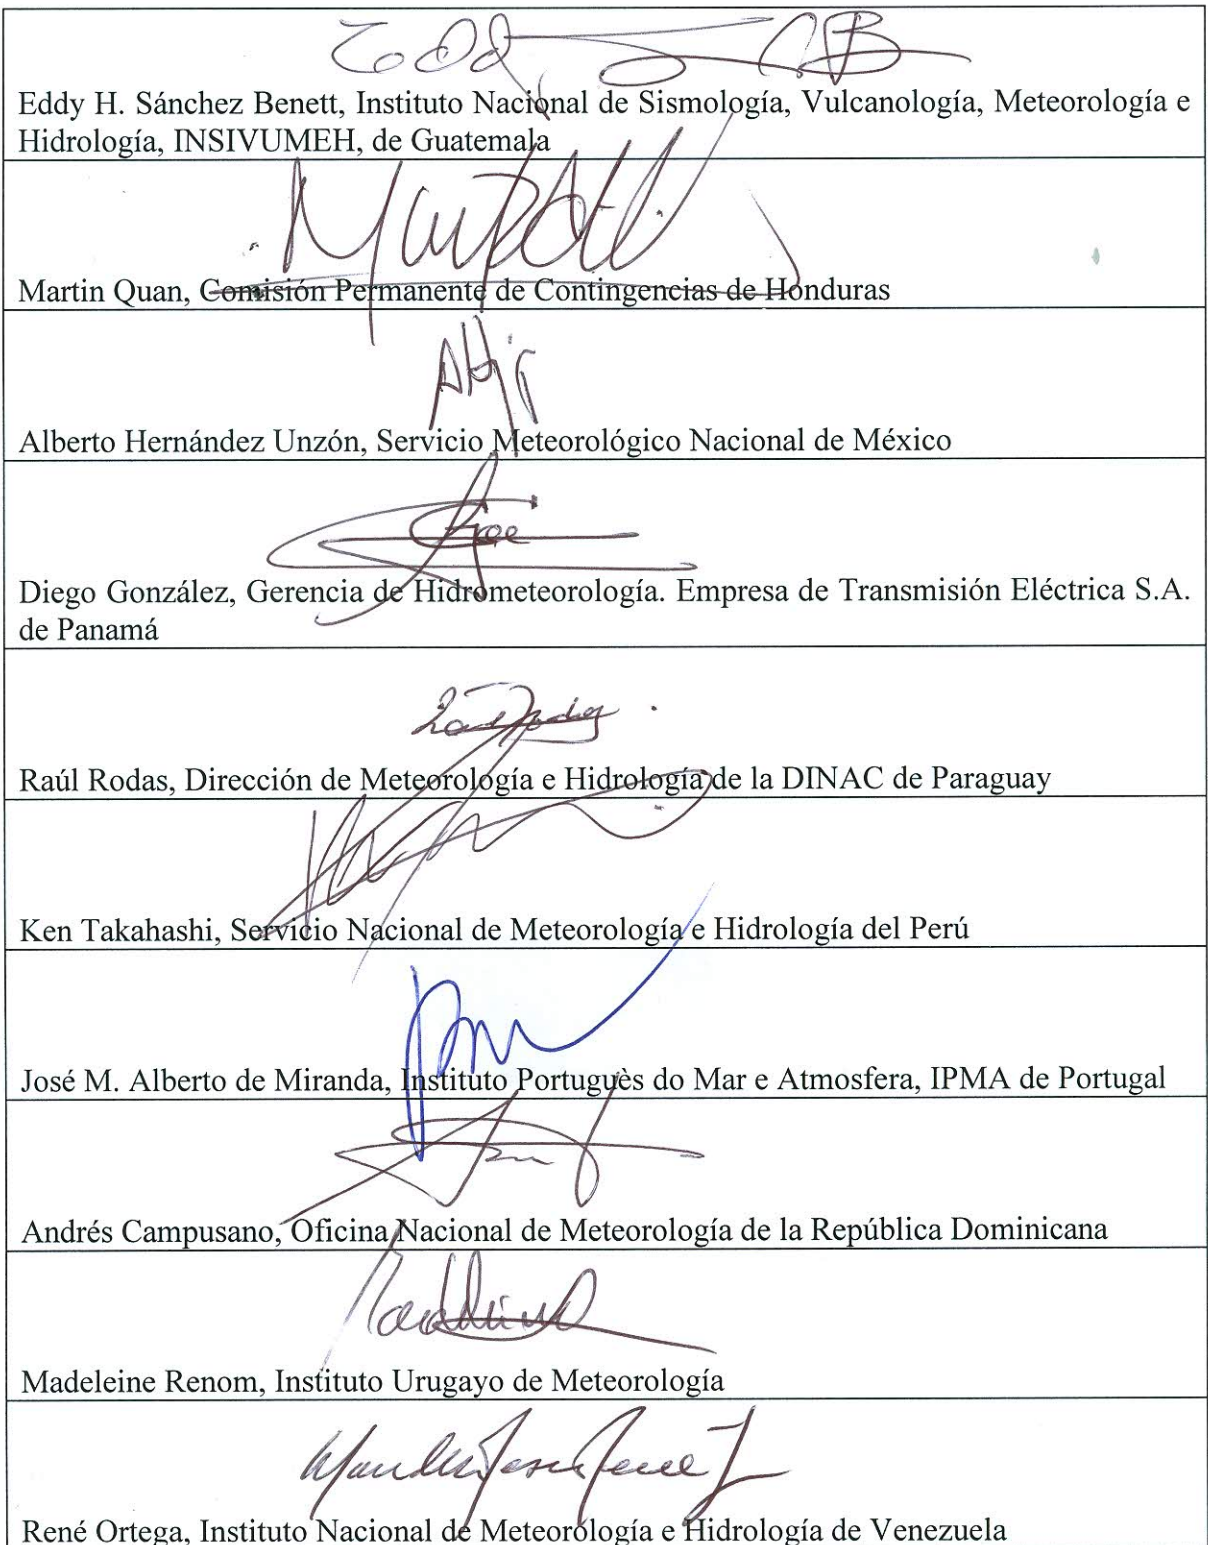 Eddy H. Sánchez Benett, Instituto Nacional de Sismología, Vulcanología, Meteorología e
Hidrología, INSIVUMEH, de Guatemala
Martin Quan, Comisión Permanente de Contingencias de Honduras
Alberto Hernández Unzón, Servicio Meteorológico Nacional de México
Diego González, Gerencia de Hidrometeorología. Empresa de Transmisión Eléctrica S.A.
de Panamá
Raúl Rodas, Dirección de Meteorología e Hidrología de la DINAC de Paraguay
Ken Takahashi, Servicio Nacional de Meteorología e Hidrología del Perú
José M. Alberto de Miranda, Instituto Portuguès do Mar e Atmosfera, IPMA de Portugal
Andrés Campusano, Oficina Nacional de Meteorología de la República Dominicana
Madeleine Renom, Instituto Urugayo de Meteorología
René Ortega, Instituto Nacional de Meteorología e Hidrología de Venezuela